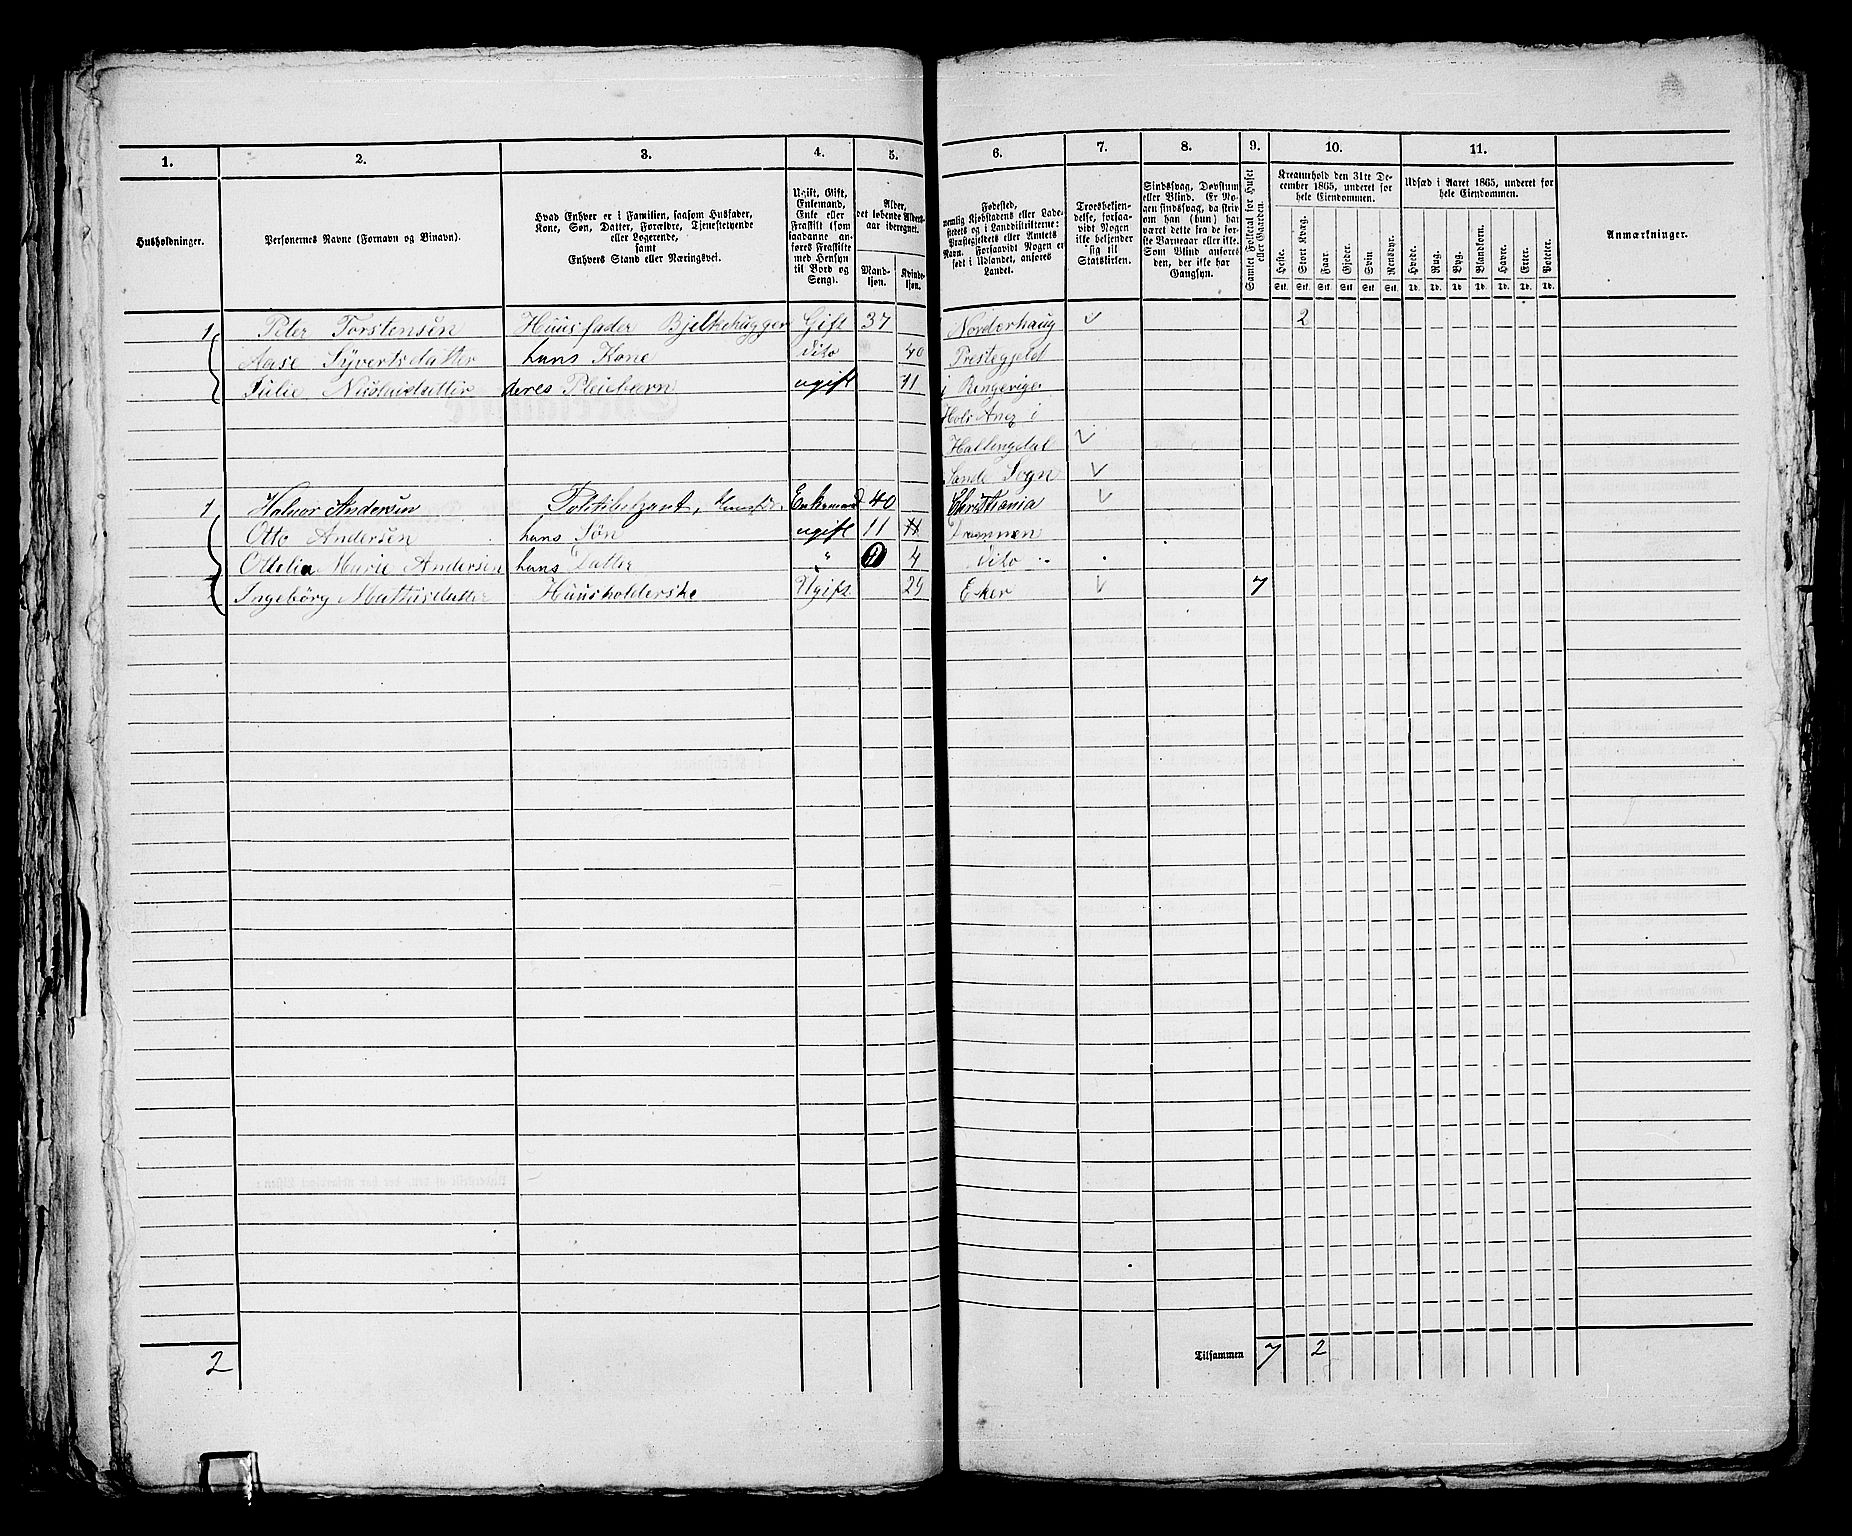 1. 2. 3. 4. 5. 6. 7. 8. 9. 10. 11.
Husholdninger.
Personernes Navne (Fornavn og Binavn).
Hvad Enhver er i Familien, saasom Husfader,
Kone, Søn, Datter, Forældre, Tjenestetyende
eller Logerende,
samt
Enhvers Stand eller Næringsvei.
Ugift, Gift,
Enkemand,
Enke eller
Fraskilt (som
saadanne an-
føres Fraskilte
med Hensyn
til Bord og
Seng).
Alder,
det løbende Alders-
aar iberegnet.
Mand-
kjøn.
Kvinde-
kjøn.
Fødested,
nemlig Kjøbstadens eller Lade-
stedets og i Landdistrikterne:
Præstegjeldets eller Amtets
Navn. Forsaavidt Nogen er
født i Udlandet, anføres
Landet.
Troesbekjen-
delse, forsaa-
vidt Nogen
ikke bekjender
sig til
Statskirken.
Sindssvag, Døvstum
eller Blind. Er No-
gen sindssvag, da skriv
om han (hun) har
været dette fra de før-
ste Barneaar eller ikke.
Som Blind anføres
den, der ikke har
Gangsyn.
Samlet Folketal for Huset
eller Gaarden.
Kreaturhold den 31te De-
cember 1865, underet for
hele Eiendommen.
Heste. Stort Kvæg. Faar. Gjeder. Svin Rensdyr.
Stk. Stk. Stk. Stk. Stk. Stk.
Udsæd i Aaret 1865, underet for
hele Eiendommen.
Hvede. Rug. Byg. Blandkorn. Havre. Erter. Poteter.
Td. Td. Td. Td. Td. Td. Td.
Anmærkninger.
1 Peter Torstensøn Huusfader Bjelkehugger Gift 37 Norderhaug 2
Aase Syvertsdatter hans Kone dito 40 Prestegjeld
Julie Nicolaidatter deres Pleiebarn ugift 11 i Ringerige
Hols Anex i
Hallingdal
Sande Sogn
1 Halvor Andersen Politibetjent, Enkemand 40 Christiania
Otto Andersen hans Søn ugift 11 11 Drammen
Ottelia Marie Andersen hans Datter " 4 dito
Ingebörg Mathisdatter Huusholderske Ugift 29 Eker 7
2 Tilsammen 7 2